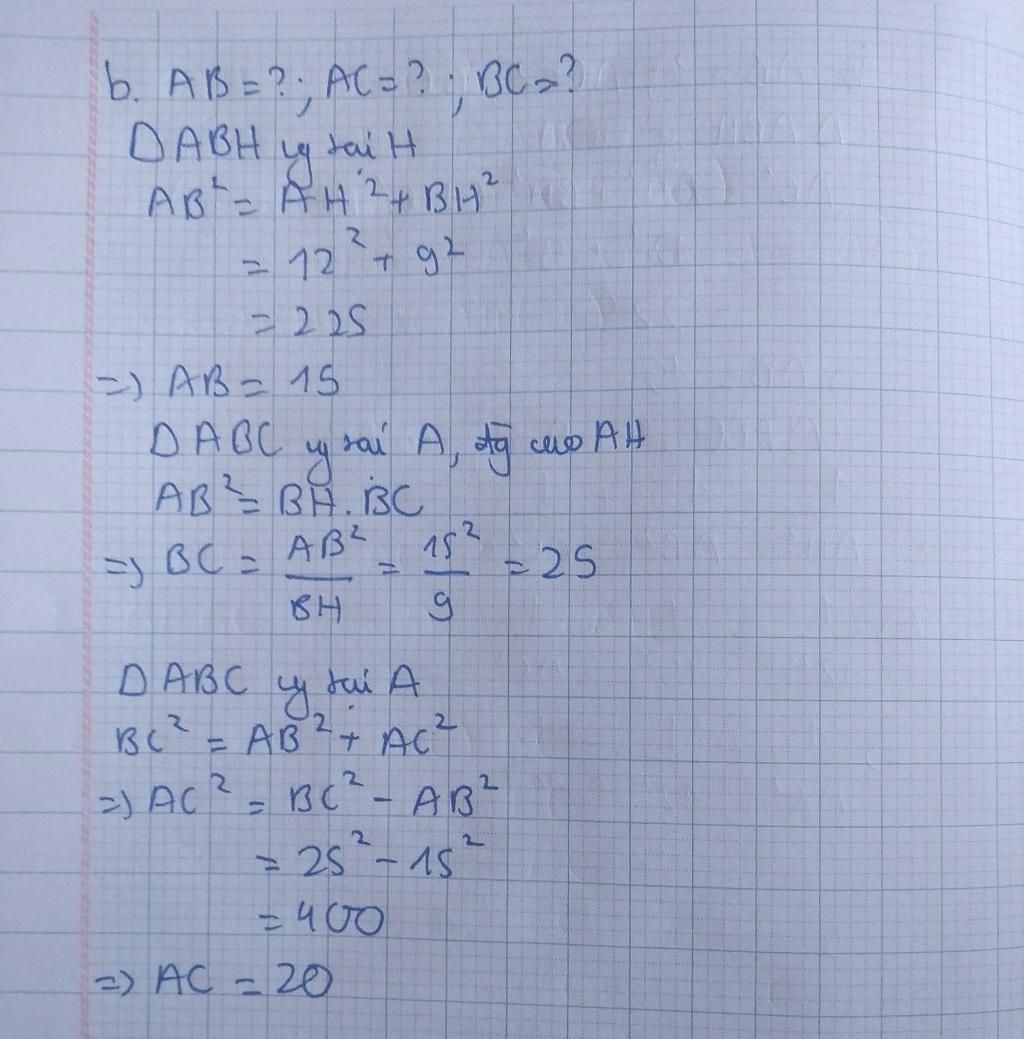 b. AB = ?; AC = ?; BC = ?
Δ ABH vg tại H
AB² = AH² + BH²
= 12² + 9²
= 225
=> AB = 15
Δ ABC vg tại A, đg cao AH
AB² = BH . BC
=> BC = AB²/BH = 15²/9 = 25
Δ ABC vg tại A
BC² = AB² + AC²
=> AC² = BC² - AB²
= 25² - 15²
= 400
=> AC = 20